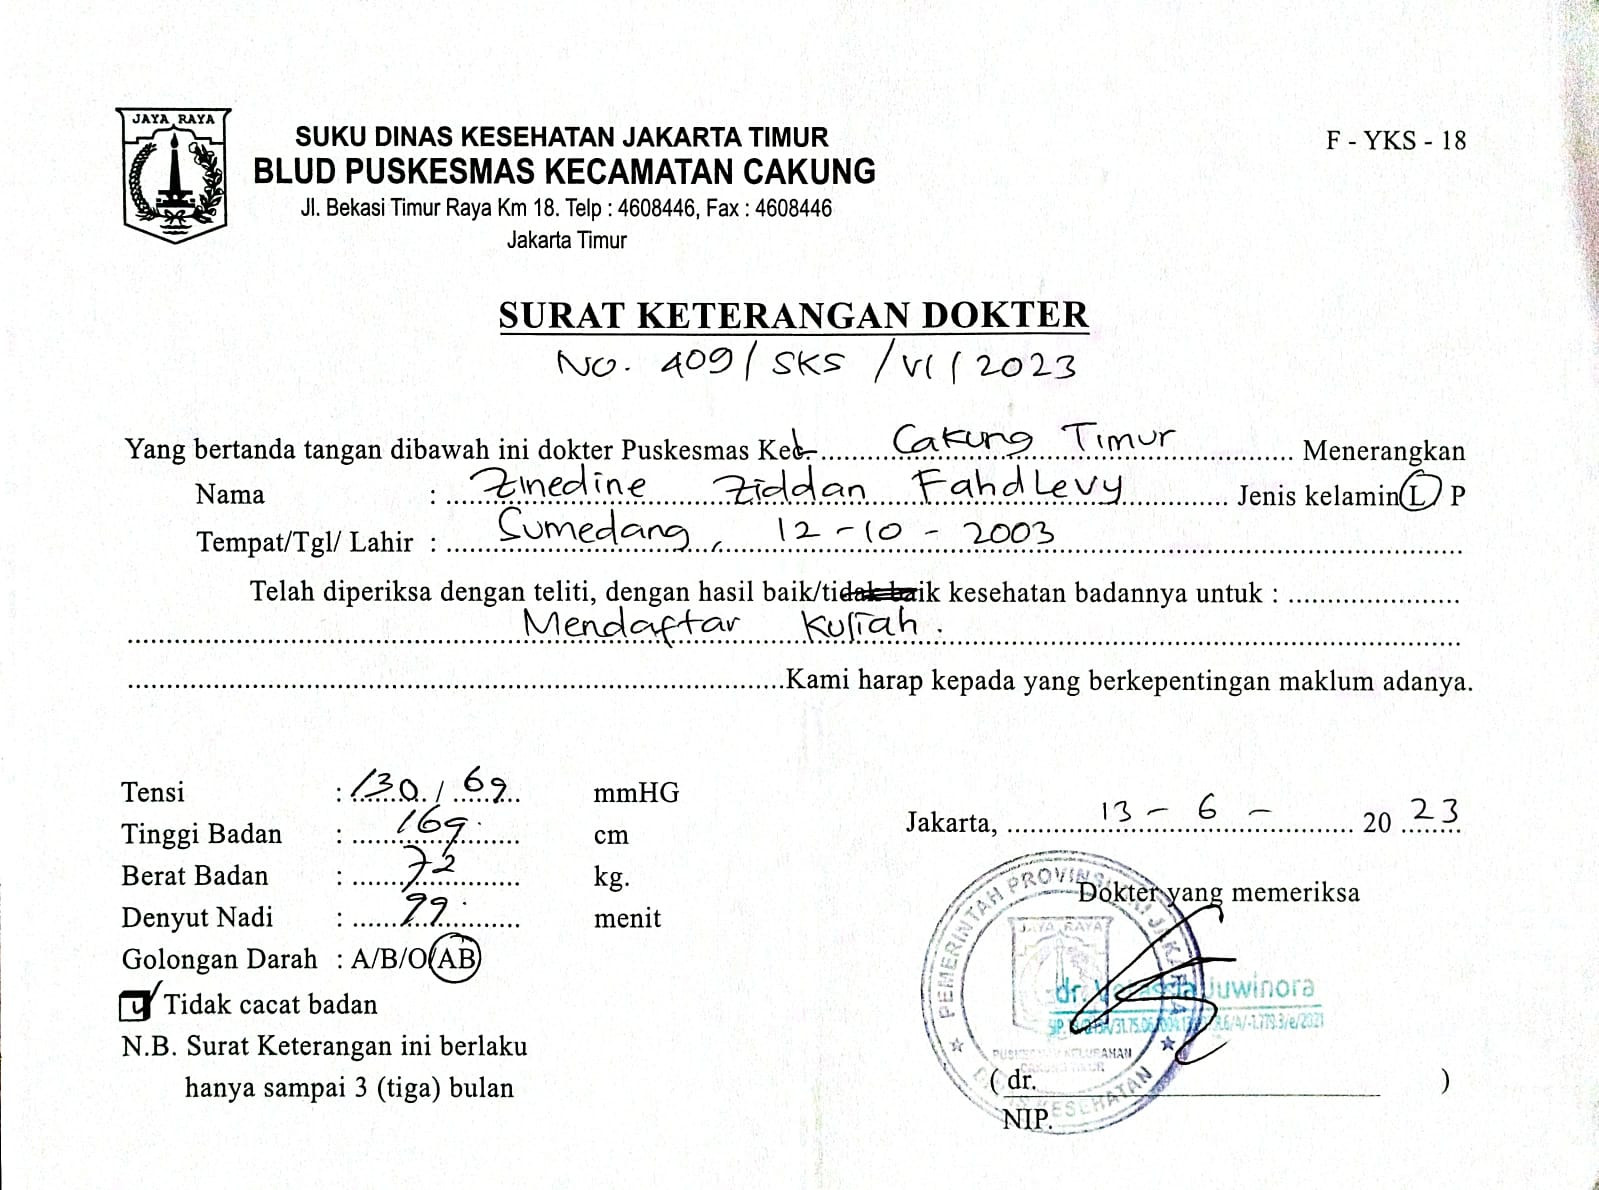 JAYA RAYA
SUKU DINAS KESEHATAN JAKARTA TIMUR
BLUD PUSKESMAS KECAMATAN CAKUNG
Jl. Bekasi Timur Raya Km 18. Telp : 4608446, Fax : 4608446
Jakarta Timur
F - YKS - 18
SURAT KETERANGAN DOKTER
No. 409 / SKS / VI / 2023
Yang bertanda tangan dibawah ini dokter Puskesmas Kel Cakung Timur Menerangkan
Nama : Zinedine Ziddan Fahdlevy Jenis kelamin L P
Tempat/Tgl/ Lahir : Sumedang, 12 - 10 - 2003
Telah diperiksa dengan teliti, dengan hasil baik/tidak baik kesehatan badannya untuk :
Mendaftar Kuliah.
Kami harap kepada yang berkepentingan maklum adanya.
Tensi : 130 / 69 mmHG
Tinggi Badan : 169 cm
Berat Badan : 72 kg.
Denyut Nadi : 99 menit
Golongan Darah : A/B/O/AB
Tidak cacat badan
N.B. Surat Keterangan ini berlaku
hanya sampai 3 (tiga) bulan
Jakarta, 13 - 6 - 20 23
Dokter yang memeriksa
PEMERINTAH PROVINSI DKI JAKARTA
JAYA RAYA
dr. Juwinora
PUSKESMAS KELURAHAN
CAKUNG TIMUR
DINAS KESEHATAN
( dr. )
NIP.